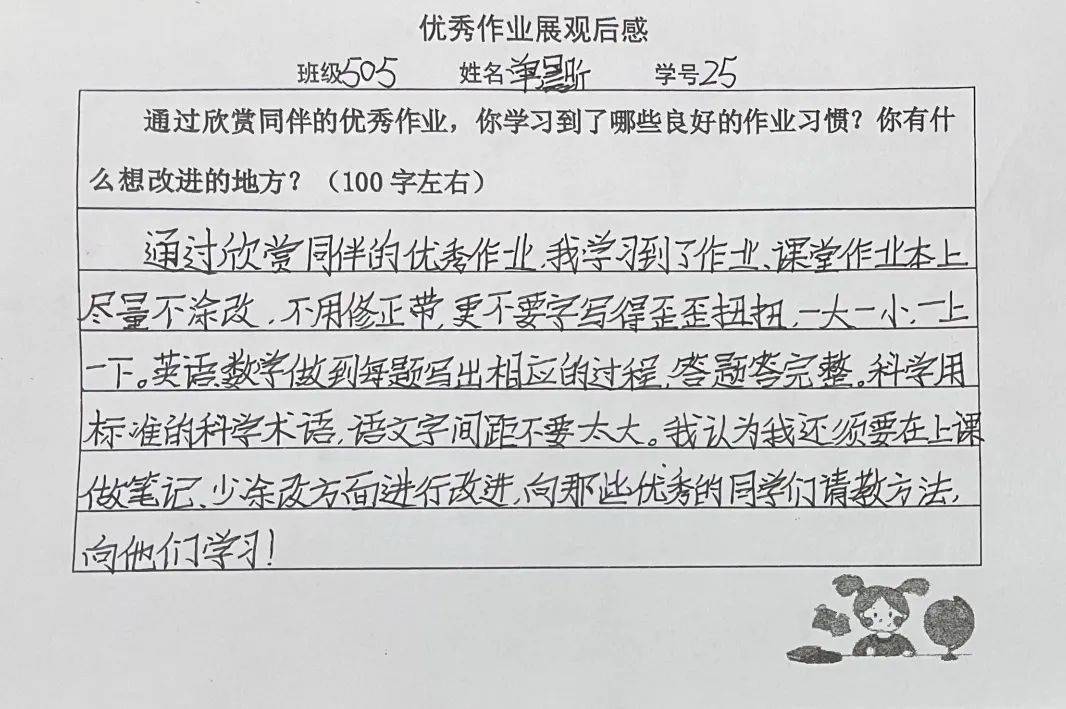 优秀作业展观后感
班级505 姓名单 昕 学号25
通过欣赏同伴的优秀作业，你学习到了哪些良好的作业习惯？你有什
么想改进的地方？（100字左右）
通过欣赏同伴的优秀作业,我学习到了作业、课堂作业本上
尽量不涂改,不用修正带,更不要字写得歪歪扭扭,一大一小,一上
一下。英语、数学做到每题写出相应的过程,答题答完整。科学用
标准的科学术语,语文字间距不要太大。我认为我还须要在上课
做笔记、少涂改方面进行改进,向那些优秀的同学们请教方法,
向他们学习!